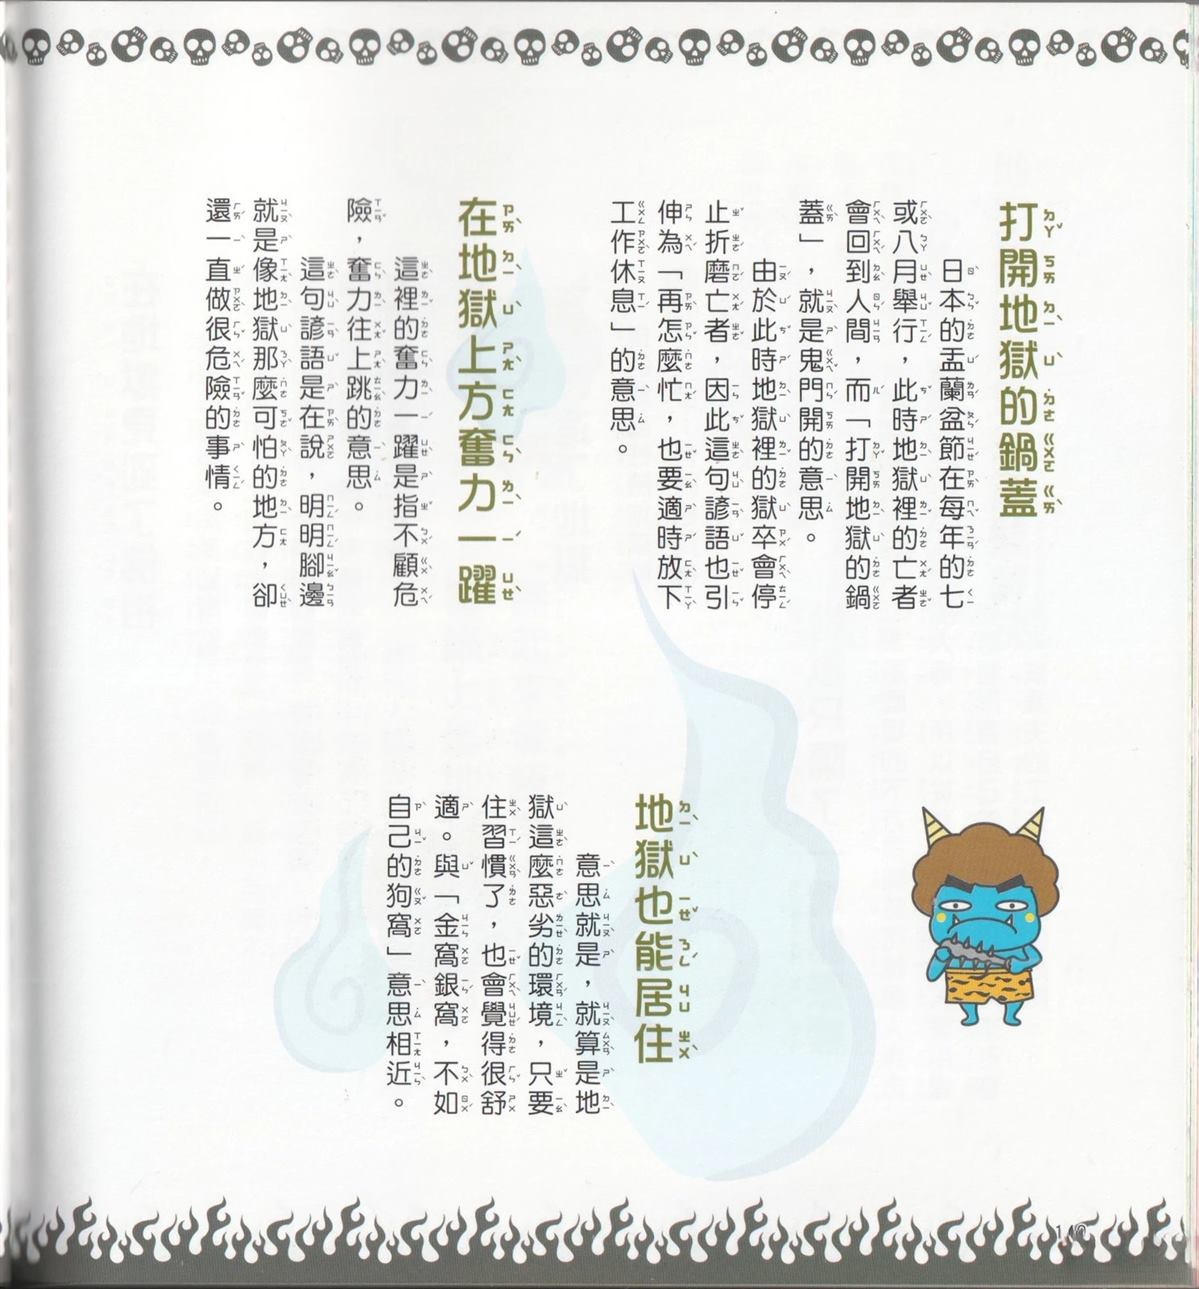 打開地獄的鍋蓋
日本的盂蘭盆節在每年的七
或八月舉行，此時地獄裡的亡者
會回到人間，而「打開地獄的鍋
蓋」，就是鬼門開的意思。
由於此時地獄裡的獄卒會停
止折磨亡者，因此這句諺語也引
伸為「再怎麼忙，也要適時放下
工作休息」的意思。
在地獄上方奮力一躍
這裡的奮力一躍是指不顧危
險，奮力往上跳的意思。
這句諺語是在說，明明腳邊
就是像地獄那麼可怕的地方，卻
還一直做很危險的事情。
地獄也能居住
意思就是，就算是地
獄這麼惡劣的環境，只要
住習慣了，也會覺得很舒
適。與「金窩銀窩，不如
自己的狗窩」意思相近。